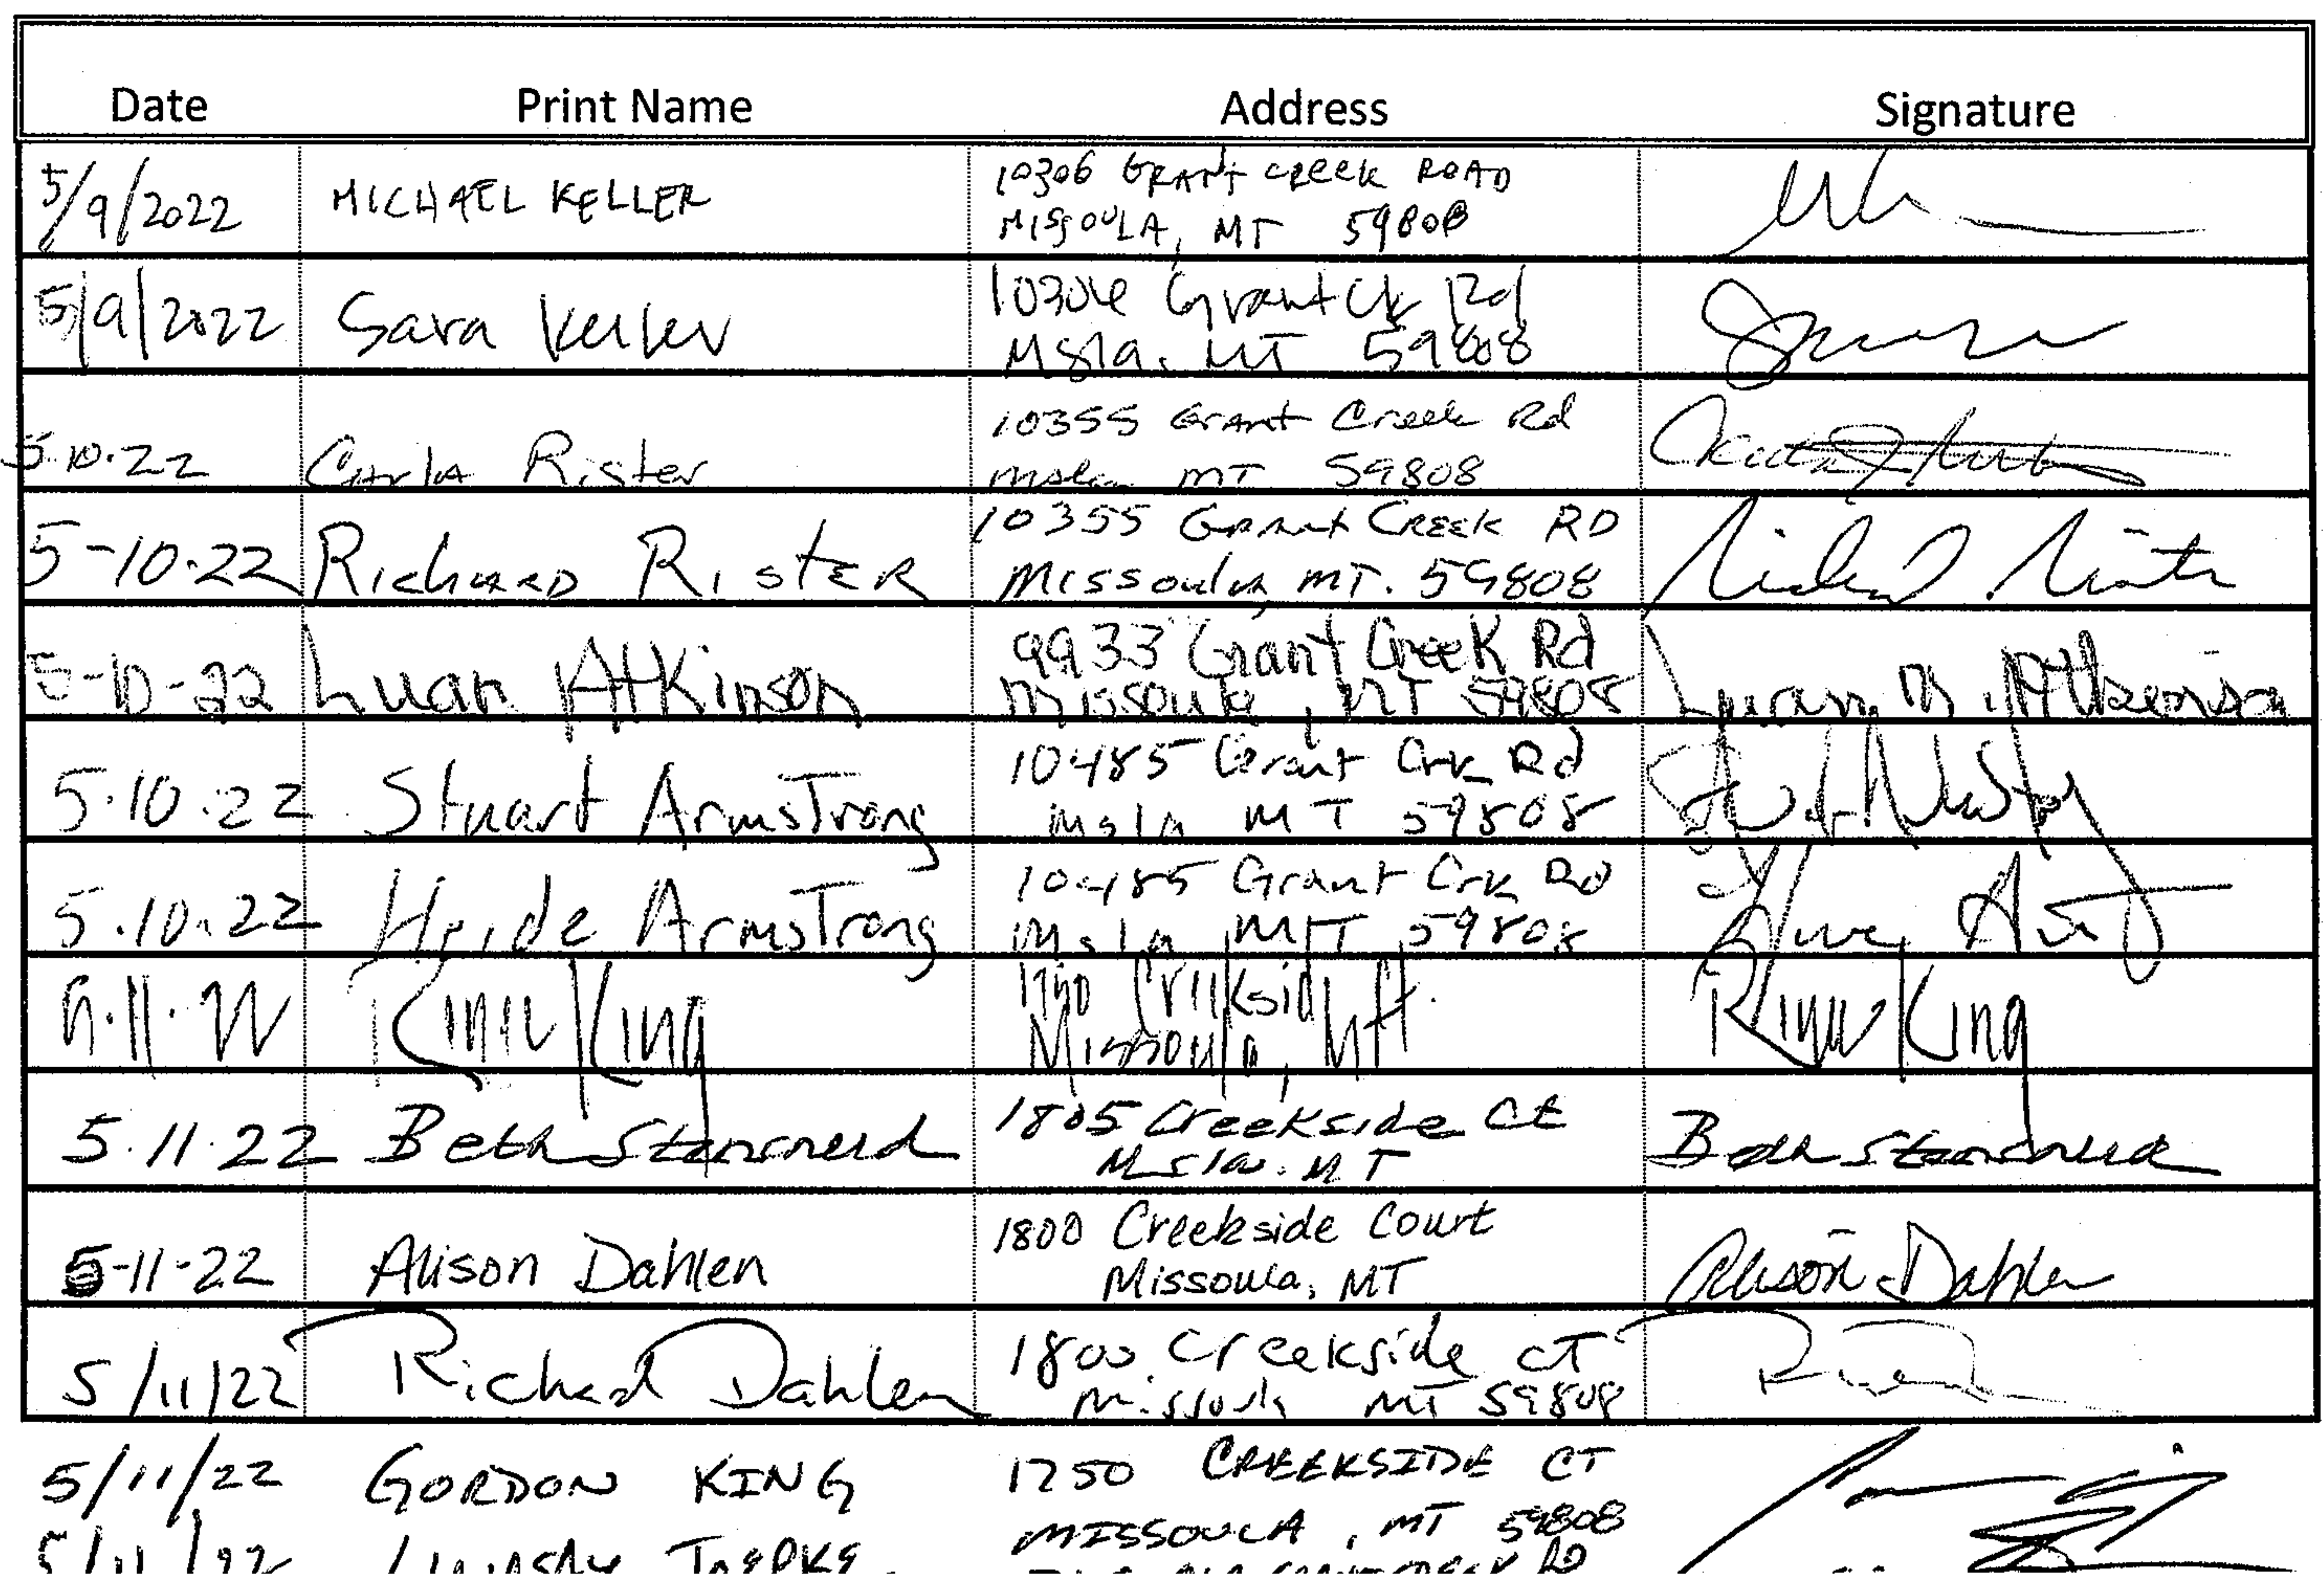 Date Print Name Address Signature
5/9/2022 MICHAEL KELLER 10306 GRANT CREEK ROAD
MISSOULA, MT 59808
5/9/2022 Sara Keller 10306 Grant Ck Rd
Msla. MT 59808
5.10.22 Carla Rister 10355 Grant Creek Rd
Msla MT 59808
5-10-22 Richard Rister 10355 Grant Creek RD
Missoula, MT. 59808
5-10-22 Luan Atkinson 9933 Grant Creek Rd Luan M. Atkinson
Missoula, MT 59808
5.10.22 Stuart Armstrong 10485 Grant Crk Rd
Msla MT 59808
5.10.22 Heide Armstrong 10485 Grant Crk Rd
Msla MT 59808
5.11.22 King Creekside Ct. King
Missoula, MT
5.11.22 Beth 1805 Creekside Ct Beth
Msla. MT
5-11-22 Alison Dahlen 1800 Creekside Court Alison Dahlen
Missoula, MT
5/11/22 Richard Dahlen 1800 Creekside CT
Missoula MT 59808
5/11/22 GORDON KING 1750 CREEKSIDE CT
MISSOULA, MT 59808
5/11/22